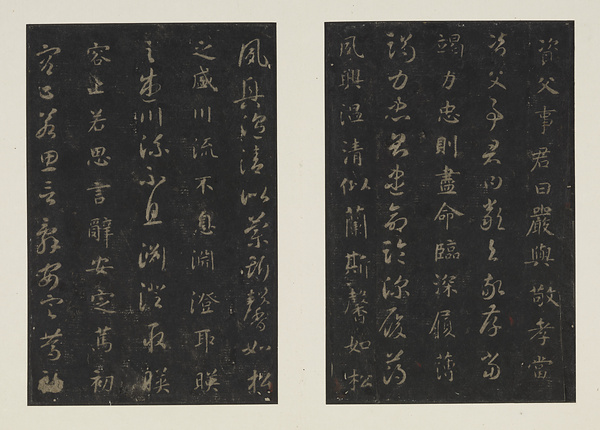 資父事君曰嚴與敬孝當
資父事君曰嚴與敬孝當
竭力忠則盡命臨深履薄
竭力忠則盡命臨深履薄
夙興温清似蘭斯馨如松
夙興温清似蘭斯馨如松
之盛川流不息淵澄取暎
之盛川流不息淵澄取暎
容止若思言辭安定篤初
容止若思言辭安定篤初